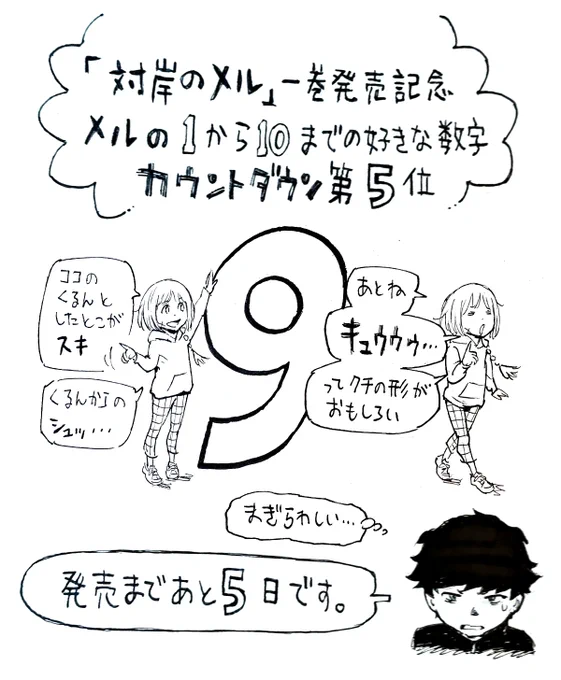 「対岸のメル」一巻発売記念
メルの1から10までの好きな数字
カウントダウン第5位
9
ココの
くるんと
したとこが
スキ
くるんからの
シュッ・・・
あとね
キュウゥゥ・・・
ってクチの形が
おもしろい
まぎらわしい・・・
発売まであと5日です。